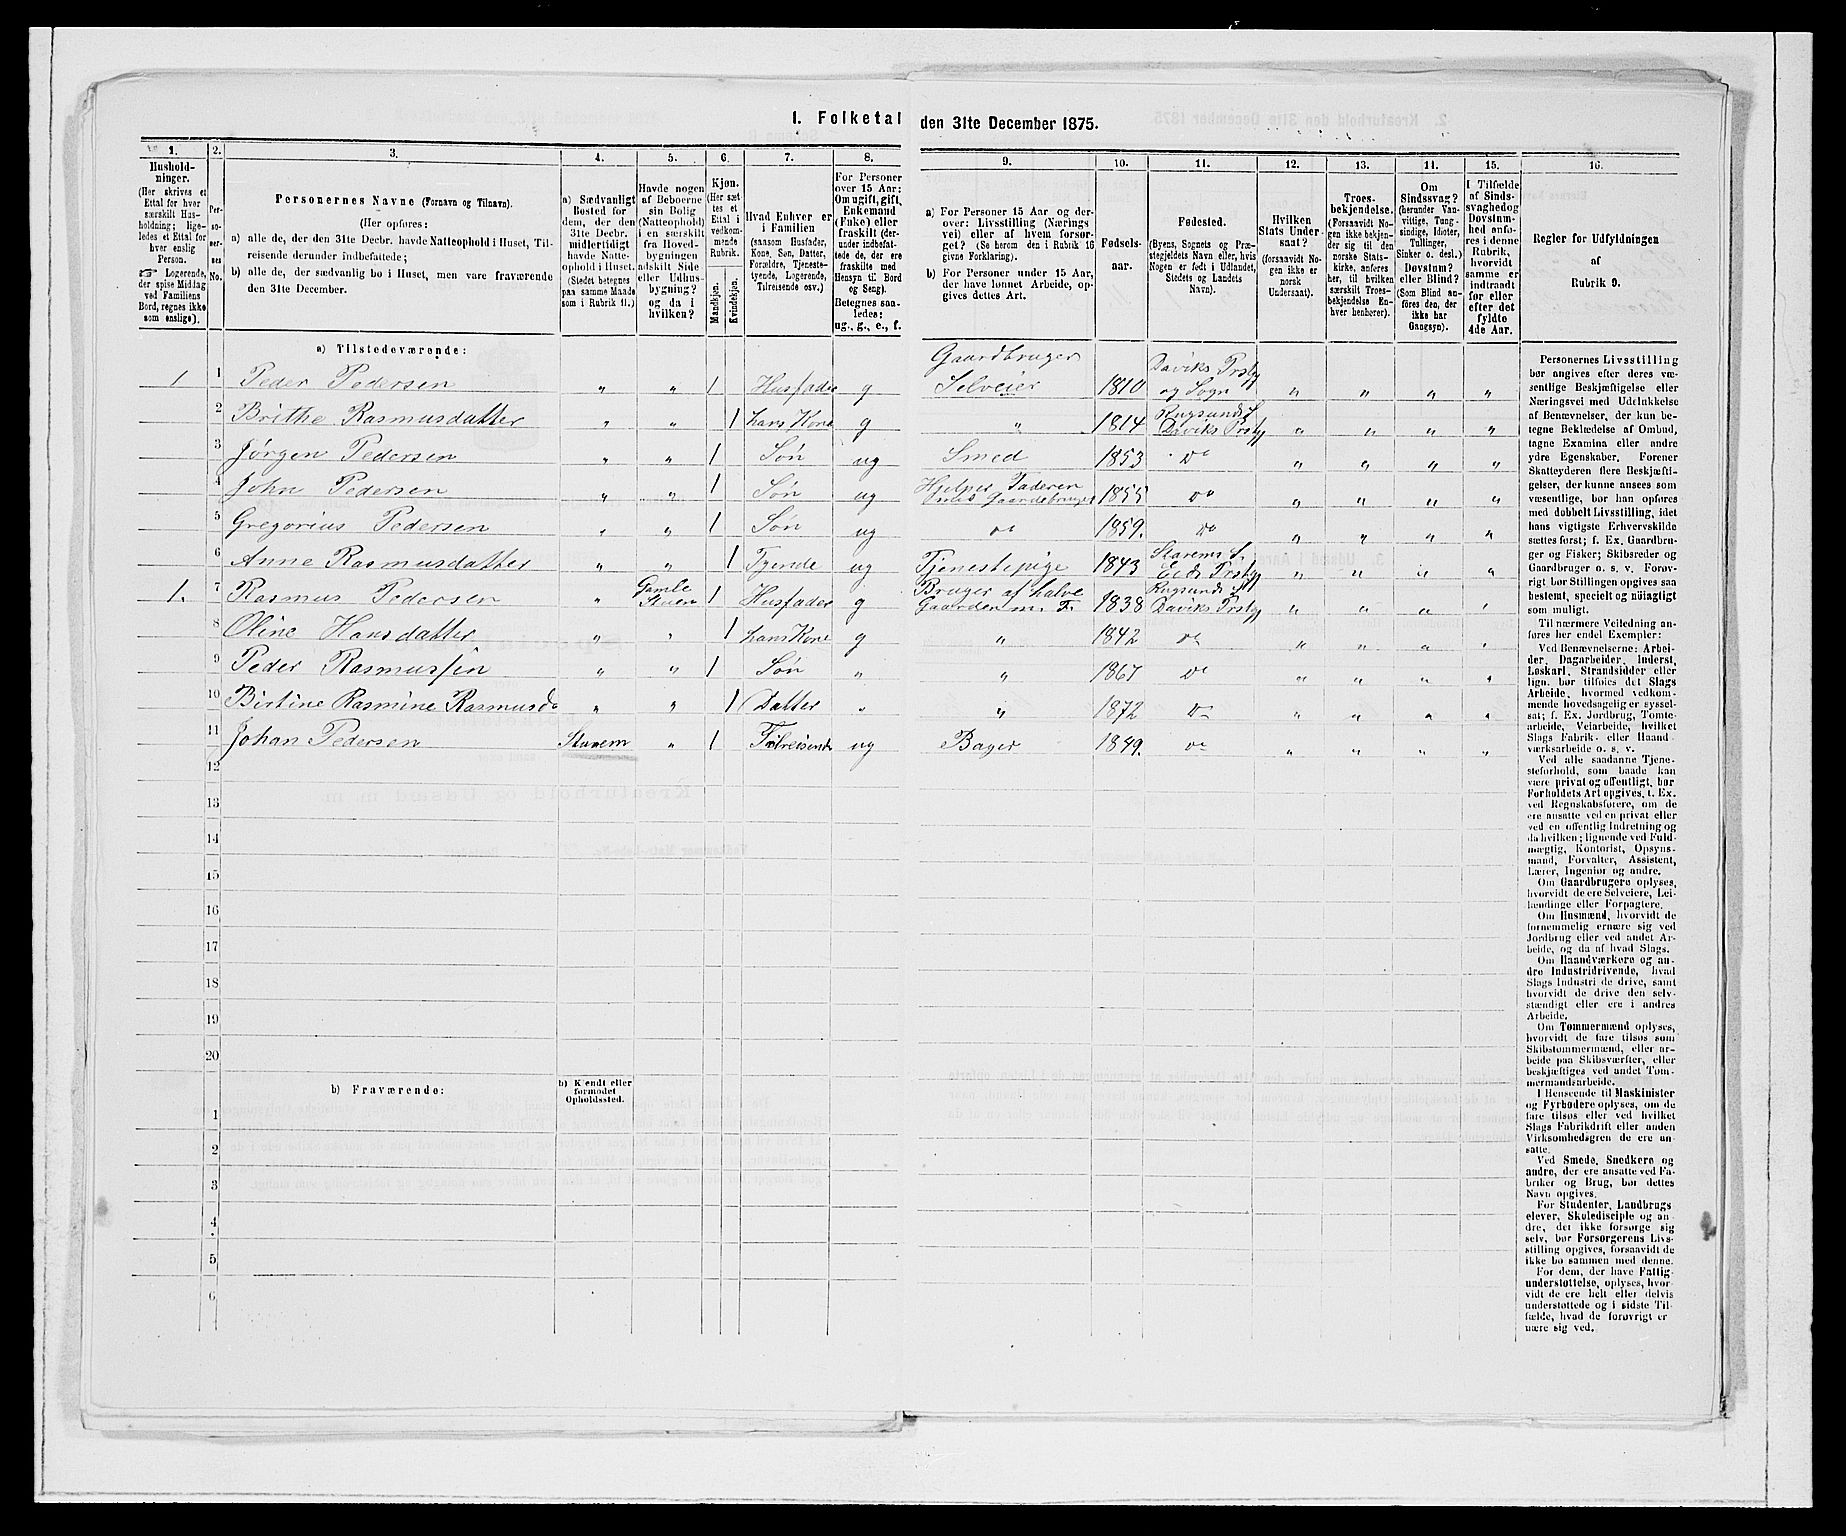 1. Folketal den 31te December 1875.
1. 2. 3. 4. 5. 6. 7. 8. 9. 10. 11. 12. 13. 14. 15. 16.
Hushold-
ninger.
(Her skrives et
Ettal for hver
særskilt Hus-
holdning; lige-
ledes et Ettal for
hver enslig
Person.
☞ Logerende,
der spise Middag
ved Familiens
Bord, regnes ikke
som enslige).
Per-
so-
ner-
nes
No.
Personernes Navne (Fornavn og Tilnavn).
(Her opføres:
a) alle de, der den 31te Decbr. havde Natteophold i Huset, Til-
reisende derunder indbefattede;
b) alle de, der sædvanlig bo i Huset, men vare fraværende
den 31te December.
a) Sædvanligt
Bosted for
dem, der den
31te Decbr.
midlertidigt
havde Natte-
ophold i Huset.
(Stedet betegnes
paa samme Maade
som i Rubrik 11.)
Havde nogen
af Beboerne
sin Bolig
(Natteophold)
i en særskilt
fra Hoved-
bygningen
adskilt Side
eller Udhus-
bygning?
og da i
hvilken?
Kjøn.
(Her sæt-
tes et
Ettal i
vedkom-
mende
Rubrik.
Mandkjøn.
Kvindekjøn.
Hvad Enhver er
i Familien
(saasom Husfader,
Kone, Søn, Datter,
Forældre, Tjeneste-
tyende, Logerende,
Tilreisende osv.)
For Personer
over 15 Aar:
Om ugift, gift,
Enkemand
(Enke) eller
fraskilt (der-
under indbefat-
tede de, der ere
fraskilte med
Hensyn til Bord
og Seng).
Betegnes saa-
ledes:
ug., g., e., f.
a) For Personer 15 Aar og der-
over: Livsstilling (Nærings
vei) eller af hvem forsør-
get? (Se herom den i Rubrik 16
givne Forklaring).
b) For Personer under 15 Aar,
der have lønnet Arbeide, op-
gives dettes Art.
Fødsels-
aar.
Fødested.
(Byens, Sognets og Præ-
stegjeldets Navn eller, hvis
Nogen er født i Udlandet,
Stedets og Landets
Navn).
Hvilken
Stats Under-
saat?
(forsaavidt No-
gen ikke er
norsk
Undersaat).
Troes-
bekjendelse.
(Forsaavidt No-
gen ikke bekjen-
der sig til den
norske Stats-
kirke, anføres
her, til hvilken
særskilt Troes-
bekjendelse En-
hver henhører).
Om
Sindssvag?
(herunder Van-
vittige, Tung-
sindige, Idioter,
Tullinger,
Sinker o. desl.)
Døvstum?
eller Blind?
(Som Blind an-
føres den, der
ikke har
Gangsyn).
I Tilfælde
af Sinds-
svaghed og
Døvstum-
hed anfø-
res i denne
Rubrik,
hvorvidt
samme er
indtraadt
før eller
efter det
fyldte
4de Aar.
Regler for Udfyldningen
af
Rubrik 9.
a) Tilstedeværende:
1 1 Peder Pedersen " " 1 Husfader g Gaardbruger Selveier 1810 Daviks Prstg og Sogn " " " "
2 Brithe Rasmusdatter " " 1 hans Kone g " 1814 Rugsund S. Daviks Prstg " " " "
3 Jørgen Pedersen " " 1 Søn ug Smed 1853 do " " " "
4 John Pedersen " " 1 Søn ug Hjelper Faderen med Gaardsbruget 1855 do " " " "
5 Gregorius Pedersen " " 1 Søn ug do 1859. do " " " "
6 Anne Rasmusdatter " " 1 Tyende ug Tjenestepige 1843 Starems S. Eids Prstg " " " "
1. 7 Rasmus Pedersen " Gamle Stuen 1 Husfader g Bruger af halve Gaarden m. F. 1838 Rugsunds S. Daviks Prstg " " " "
8 Oline Hansdatter " " 1 hans Kone g " 1842 do " " " "
9 Peder Rasmussen " " 1 Søn " " 1867 do " " " "
10 Birtine Rasmine Rasmusd " " 1 Datter " " 1872 do " " " "
11 Johan Pedersen Starem " 1 Tilreisende ug Bager 1849. do " " " "
12
13
14
15
16
17
18
19
20
b) Fraværende:
b) Kjendt eller
formodet
Opholdssted.
1
2
3
4
5
6
Personernes Livsstilling
bør angives efter deres væ-
sentlige Beskjæftigelse eller
Næringsvei med Udelukkelse
af Benævnelser, der kun be-
tegne Beklædelse af Ombud,
tagne Examina eller andre
ydre Egenskaber. Forener
Skatteyderen flere Beskjæfti-
gelser, der kunne ansees som
væsentlige, bør han opføres
med dobbelt Livsstilling, idet
hans vigtigste Erhvervskilde
sættes først; f. Ex. Gaardbru-
ger og Fisker; Skibsreder og
Gaardbruger o. s. v. Forøv-
rigt bør Stillingen opgives saa
bestemt, specielt og nøiagtigt
som muligt.
Til nærmere Veiledning an-
føres her endel Exempler:
Ved Benævnelserne: Arbei-
der, Dagarbeider, Inderst,
Løskarl, Strandsidder eller
lign. bør tilføies det Slags
Arbeide, hvormed vedkom-
mende hovedsagelig er syssel-
sat; f. Ex. Jordbrug, Tomte-
arbeide, Veiarbeide, hvilket
Slags Fabrik- eller Haand-
værksarbeide o. s. v.
Ved alle saadanne Tjene-
steforhold, som baade kan
være privat og offentligt, bør
Forholdets Art opgives, t. Ex.
ved Regnskabsførere, om de
ere ansatte ved en privat eller
ved en offentlig Indretning og
da hvilken; lignende ved Fuld-
mægtig, Kontorist, Opsyns-
mand, Forvalter, Assistent,
Lærer, Ingeniør og andre.
Om Gaardbrugere oplyses,
hvorvidt de ere Selveiere, Lei-
lændinge eller Forpagtere.
Om Husmænd, hvorvidt de
fornemmelig ernære sig ved
Jordbrug eller ved andet Ar-
beide, og da af hvad Slags.
Om Haandværkere og an-
dre Industridrivende, hvad
Slags Industri de drive, samt
hvorvidt de drive den selv-
stændigt eller ere i andres
Arbeide.
Om Tømmermænd oplyses,
hvorvidt de fare tilsøs som
Skibstømmermænd, eller ar-
beide paa Skibsværfter, eller
beskjæftiges ved andet Tøm-
mermandsarbeide.
I Henseende til Maskinister
og Fyrbødere oplyses, om de
fare tilsøs eller ved hvilket
Slags Fabrikdrift eller anden
Virksomhedsgren de ere an-
satte.
Ved Smede, Snedkere og
andre, der ere ansatte ved Fa-
briker og Brug, bør dettes
Navn opgives.
For Studenter, Landbrugs
elever, Skoledisciple og an-
dre, det ikke forsørge sig
selv, bør Forsørgerens Livs-
stilling opgives, forsaavidt de
ikke bo sammen med denne.
For dem, der have Fattig-
understøttelse, oplyses, hvor-
vidt de ere helt eller delvis
understøttede og i sidste Til-
fælde, hvad de forøvrigt er
nære sig ved.